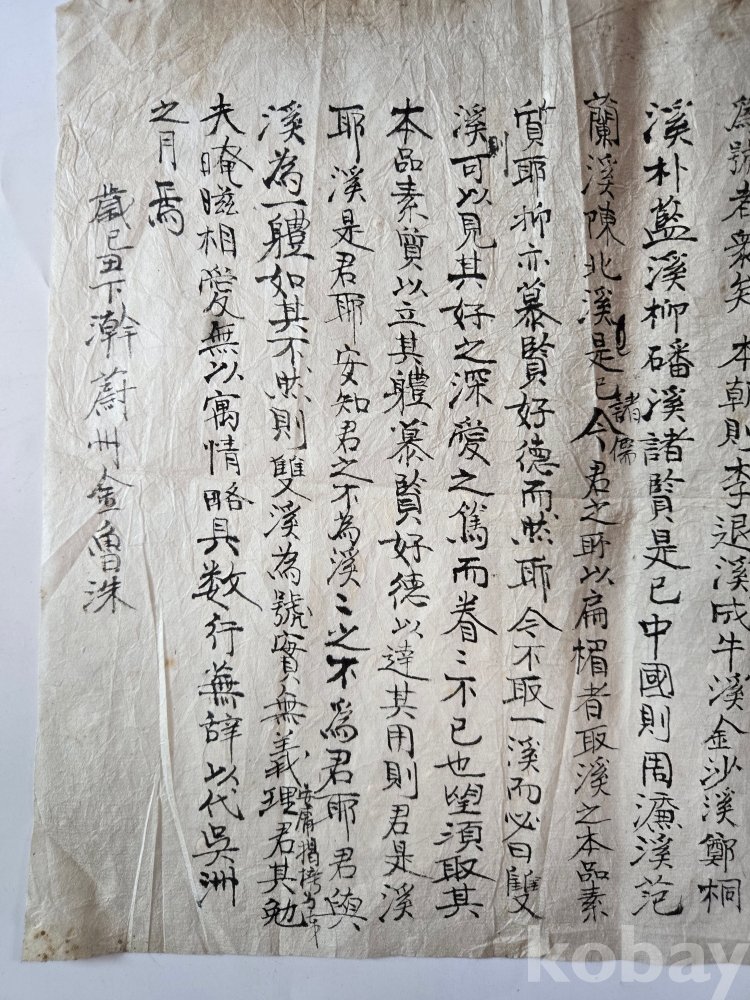 為號者衆矣 本朝則李退溪成牛溪金沙溪鄭桐
溪朴藍溪柳磻溪諸賢是已中國則周濂溪范
蘭溪陳北溪諸儒是已今君之所以扁楣者取溪之本品素
質耶抑亦慕賢好德而然耶今不取一溪而必曰雙
溪則可以見其好之深愛之篤而眷〻不已也望須取其
本品素質以立其體慕賢好德以達其用則君是溪
耶溪是君耶安知君之不為溪〻之不為君耶君與
溪為一體如其不然則雙溪為號實無義理君其勉
夫晻暱相愛無以寓情略具数行蕪辞以代吳洲
之月焉
歲己丑下澣蔚州金魯洙
kobay